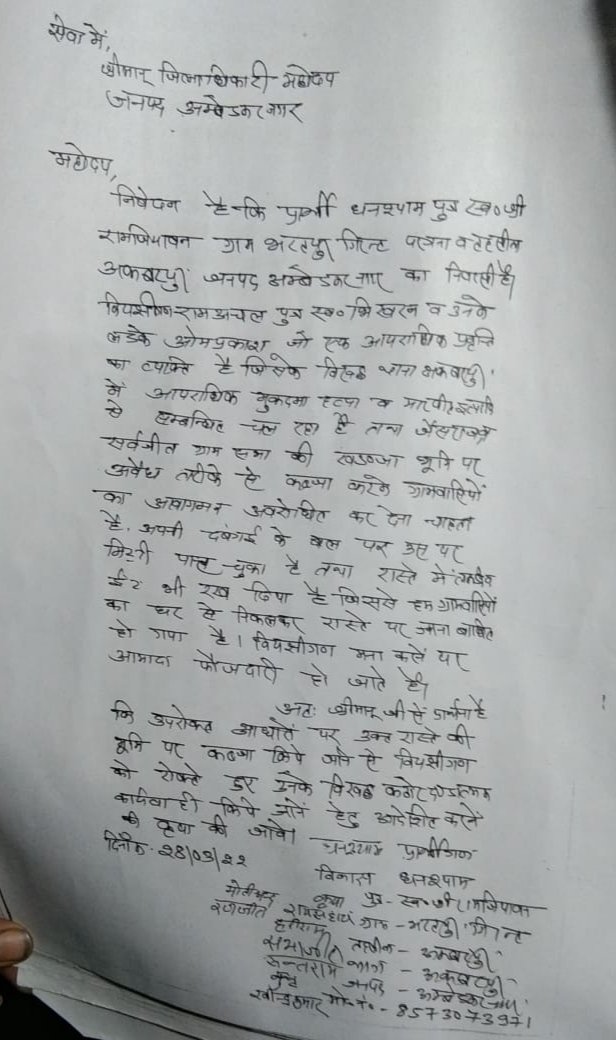 सेवा में,
श्रीमान् जिलाधिकारी महोदय
जनपद अम्बेडकरनगर
महोदय,
निवेदन है कि प्रार्थी धनश्याम पुत्र स्व० श्री
रामजियावन ग्राम भरतपुर गिरन्ट परगना व तहसील
अकबरपुर जनपद अम्बेडकरनगर का निवासी है।
विपक्षीगण रामअचल पुत्र स्व० भिखरन व उनके
लडके ओमप्रकाश जो एक आपराधिक प्रवृत्ति
का व्यक्ति है जिसके विरुद्ध थाना अकबरपुर
में आपराधिक मुकदमा हत्या व मारपीट इत्यादि
से सम्बन्धित चल रहा है तथा जैसराज व
सर्वजीत ग्राम सभा की खडण्जा भूमि पर
अवैध तरीके से कब्जा करके ग्रामवासियों
का आवागमन अवरोधित कर देना चाहता
है. अपनी दबंगई के बल पर उस पर
मिट्टी पाट चुका है तथा रास्ते में
ईट भी रख दिया है जिससे हम ग्रामवासियों
का घर से निकलकर रास्ते पर आना बाधित
हो गया है। विपक्षीगण मना करने पर
आमादा फौजदारी हो जाते है।
अतः श्रीमान् जी से प्रार्थना है
कि उपरोक्त आधारों पर उक्त रास्ते की
भूमि पर कब्जा किये जाने से विपक्षीगण
को रोकते हुए उनके विरुद्ध कठोर दण्डात्मक
कार्यवाही किये जाने हेतु आदेशित करने
की कृपा की जावे।
दिनाँक- 28/03/22
धनश्याम प्रार्थीगण
विकास धनश्याम
पुत्र - स्व० श्री रामजियावन
रणजीत रामसहाय ग्राम - भरतपुर गिरन्ट
हरीराम
सभाजीत तहसील - अकबरपुर
सन्तराम थाना - अकबरपुर
जनपद - अम्बेडकरनगर
रवीन्द्र कुमार मो० नं० - 8573073971